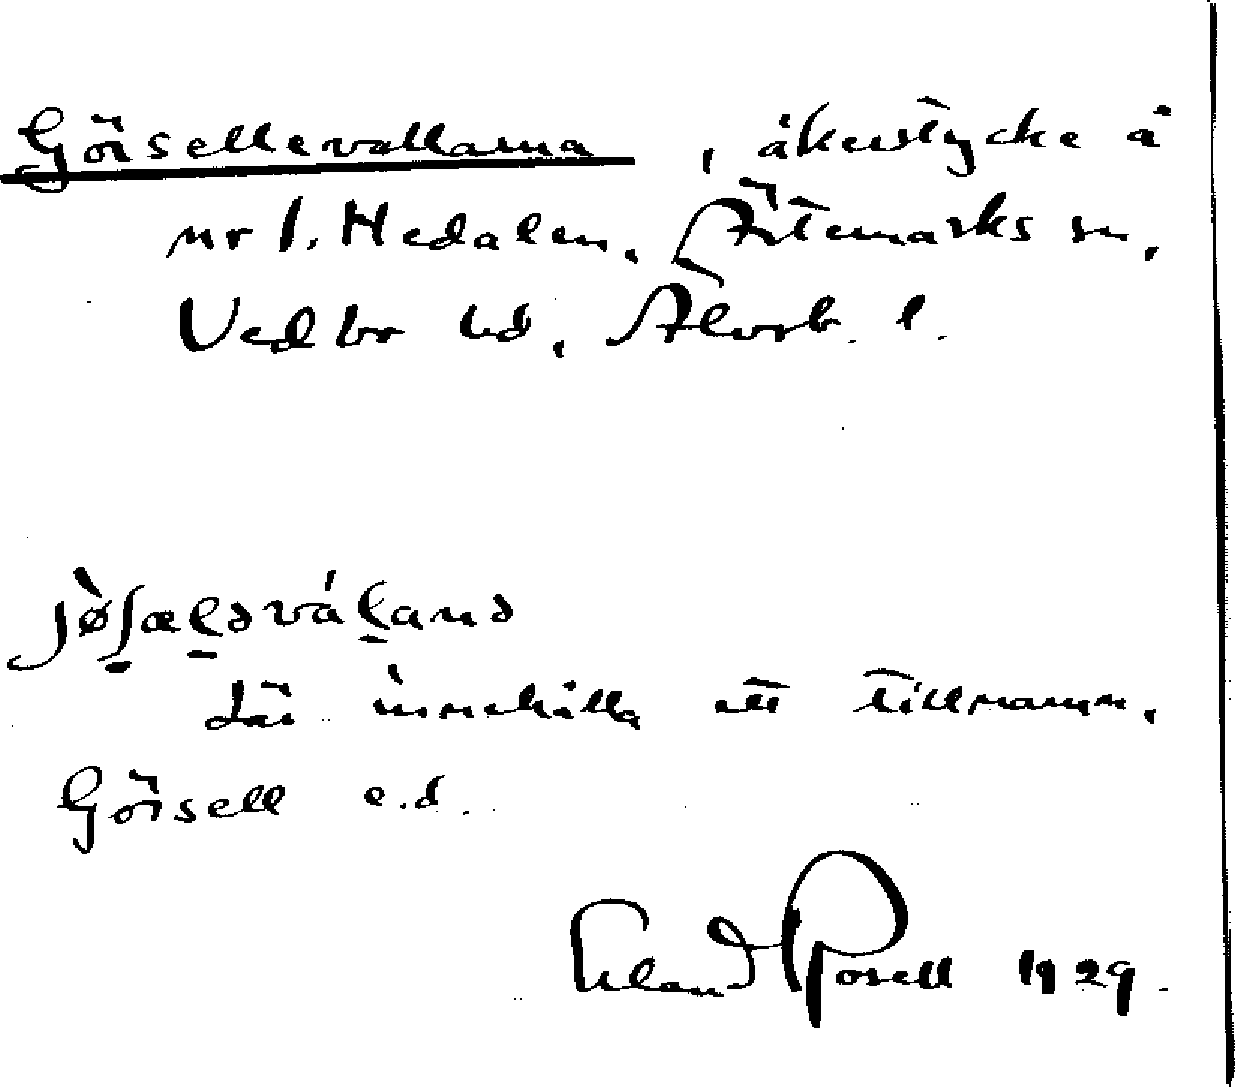 Görsellevallarna, åkerstycke å
nr 1. Hedalen, Ärtemarks sn,
Vedbo hd, Älvsb. l.
jøʃælǝválanǝ
Lär innehålla ett tillnamn,
Görsell e.d.
Erland Rosell 1929.